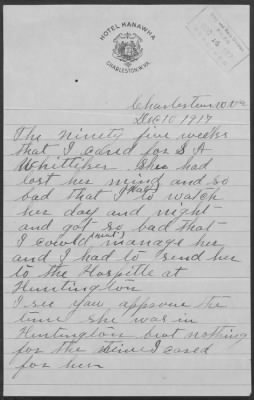 HOTEL KANAWHA
CHARLESTON, W.VA.
Charleston W Va
Dec 10 1917
The ninety five weeks
that I cared for S A
Whittiker She had
lost her mind and so
bad that I had to watch
her day and night-
and got so bad that-
I could (not) manage her
and I had to send her
to the Hospitle at
Huntington
I see you approve the
time she was in
Huntington but nothing
for the time I cared
for her